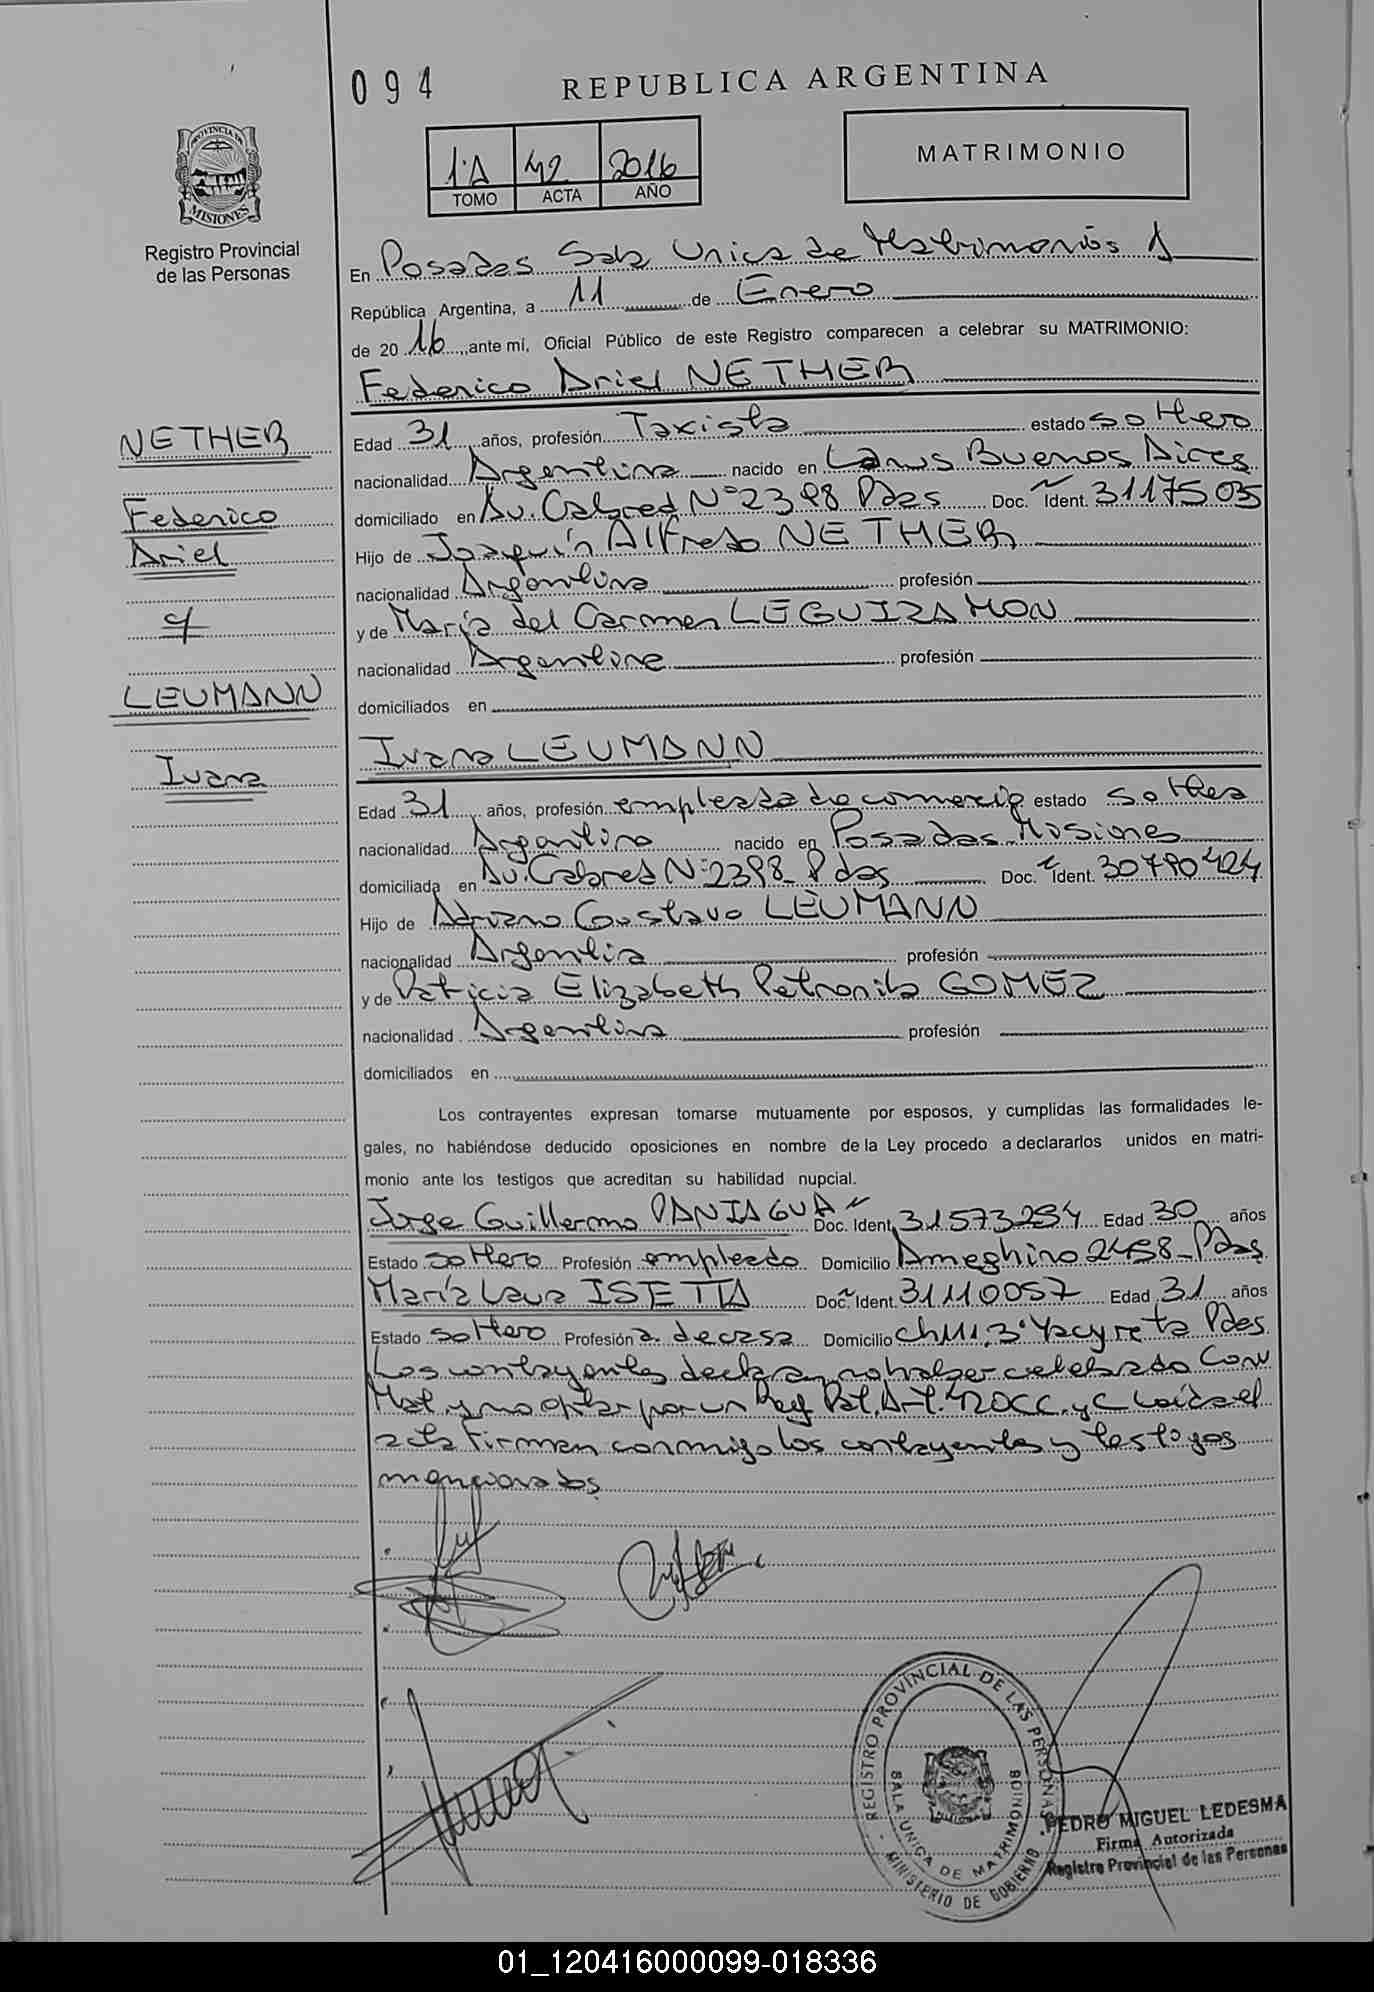 094
REPUBLICA ARGENTINA
PROVINCIA DE
MISIONES
Registro Provincial
de las Personas
1ºA 42 2016
TOMO ACTA AÑO
MATRIMONIO
En Posadas Sala Unica de Matrimonios 1
República Argentina, a 11 de Enero
de 2016, ante mí, Oficial Público de este Registro comparecen a celebrar su MATRIMONIO:
Federico Ariel NETHER
NETHER
Federico
Ariel
y
LEUMANN
Ivana
Edad 31 años, profesión Taxista estado soltero
nacionalidad Argentina nacido en Lanus Buenos Aires
domiciliado en Av. Cabred Nº 2398 Pdas Doc. Ident. 31175035
Hijo de Joaquín Alfredo NETHER
nacionalidad Argentina profesión
y de María del Carmen LEGUIZAMON
nacionalidad Argentina profesión
domiciliados en
Ivana LEUMANN
Edad 31 años, profesión empleada de comercio estado soltera
nacionalidad Argentina nacido en Posadas Misiones
domiciliada en Av. Cabred Nº 2398 Pdas Doc. Ident. 30790424
Hijo de Adriano Gustavo LEUMANN
nacionalidad Argentina profesión
y de Patricia Elizabeth Petronila GOMEZ
nacionalidad Argentina profesión
domiciliados en
Los contrayentes expresan tomarse mutuamente por esposos, y cumplidas las formalidades le-
gales, no habiéndose deducido oposiciones en nombre de la Ley procedo a declararlos unidos en matri-
monio ante los testigos que acreditan su habilidad nupcial.
Jorge Guillermo PANIAGUA Doc. Ident. 31573294 Edad 30 años
Estado soltero Profesión empleado Domicilio Ameghino 2458 Pdas
María Laura ISETTA Doc. Ident. 31110057 Edad 31 años
Estado soltero Profesión a. de casa Domicilio Yacyreta Pdas
Los contrayentes declaran no haber celebrado Conv
Mat y no optar por un Reg Pat. Art. 420 CC. y C Leída el
acta firman conmigo los contrayentes y testigos
mencionados
REGISTRO PROVINCIAL DE LAS PERSONAS
SALA UNICA DE MATRIMONIOS
MINISTERIO DE GOBIERNO
PEDRO MIGUEL LEDESMA
Firma Autorizada
Registro Provincial de las Personas
01_120416000099-018336